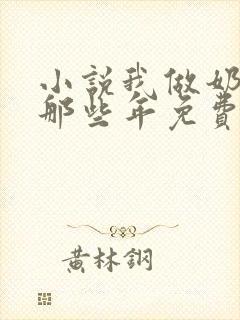 小説我做奶
那些年免費
黃林鋼